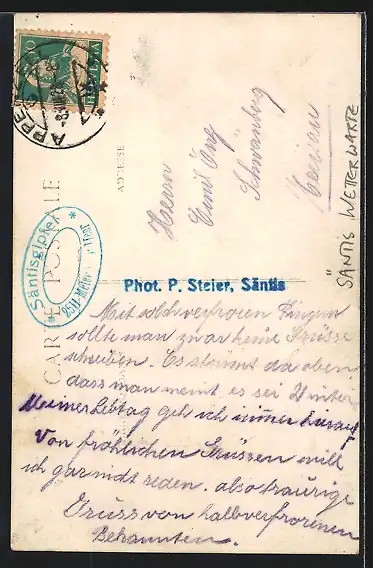 10
HELVETIA
APPENZELL
CARTE POSTALE
ADRESSE
Säntisgipfel
2511 Meter
Phot. P. Steier, Säntis
SÄNTIS WETTERWARTE
Herrn
Emil
Schwänberg
Herisau
Mit solch verfroren Fingern
sollte man zwar keine Grüsse
schreiben. Es stürmt da oben
dass man meint es sei Winter
Meiner Lebtag geh ich nimmer hinauf
Von fröhlichen Grüssen will
ich gar nicht reden. also traurige
Gruss von halbverfrorenen
Bekannten.